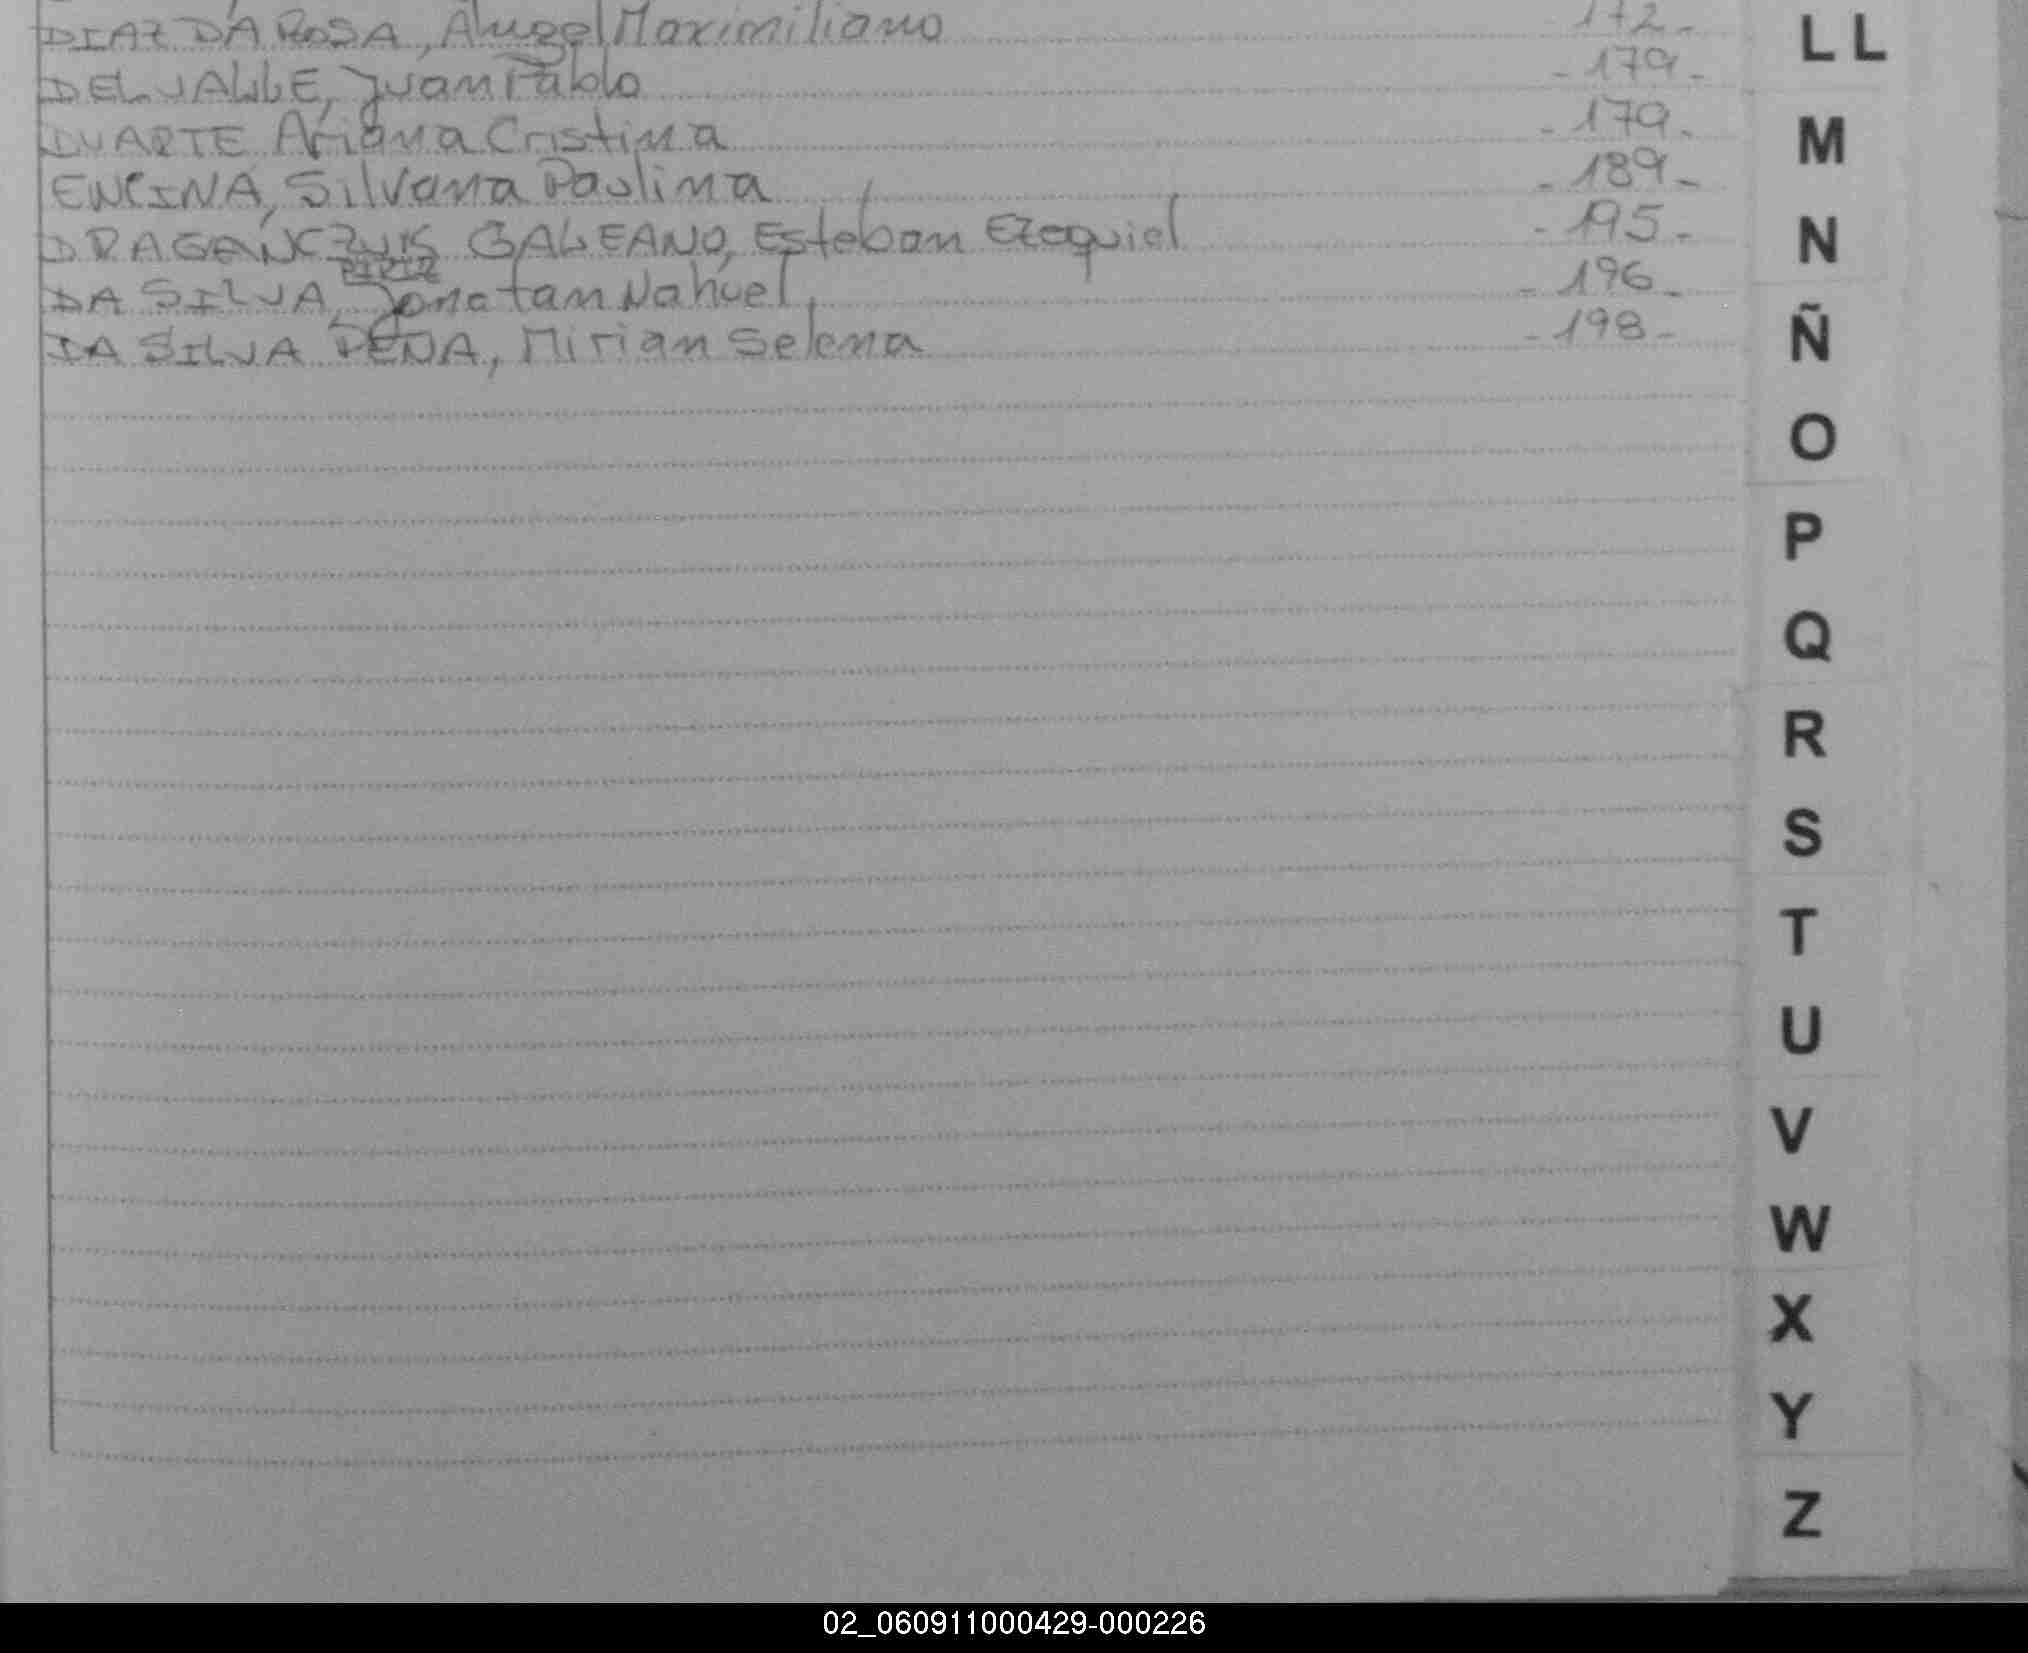 DIAZ DA ROSA, Angel Maximiliano - 172 -
DEL VALLE, Juan Pablo - 179 -
DUARTE Ariana Cristina - 179 -
ENCINA, Silvana Paulina - 189 -
DRAGANCZUIS GALEANO, Esteban Ezequiel - 195 -
PIRIZ
DA SILVA, Jonatan Nahuel, - 196 -
DA SILVA PENA, Mirian Selena - 198 -
LL
M
N
Ñ
O
P
Q
R
S
T
U
V
W
X
Y
Z
02_060911000429-000226